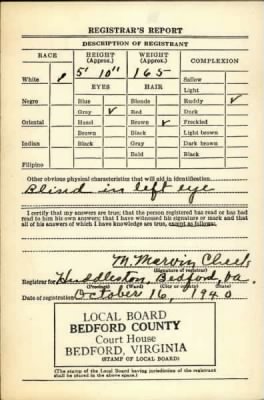 REGISTRAR'S REPORT
DESCRIPTION OF REGISTRANT
RACE HEIGHT (Approx.) WEIGHT (Approx.) COMPLEXION
White ✓ 5' 10" 165 Sallow
Light
EYES HAIR
Negro Blue Blonde Ruddy ✓
Gray ✓ Red Dark
Oriental Hazel Brown ✓ Freckled
Brown Black Light brown
Indian Black Gray Dark brown
Bald Black
Filipino
Other obvious physical characteristics that will aid in identification
Blind in left eye
I certify that my answers are true; that the person registered has read or has had
read to him his own answers; that I have witnessed his signature or mark and that
all of his answers of which I have knowledge are true, except as follows:
M. Mervin Cheek
(Signature of registrar)
Registrar for Huddleston, Bedford, Va.
(Precinct) (Ward) (City or county) (State)
Date of registration October 16, 1940
LOCAL BOARD
BEDFORD COUNTY
Court House
BEDFORD, VIRGINIA
(STAMP OF LOCAL BOARD)
(The stamp of the Local Board having jurisdiction of the registrant
shall be placed in the above space.)